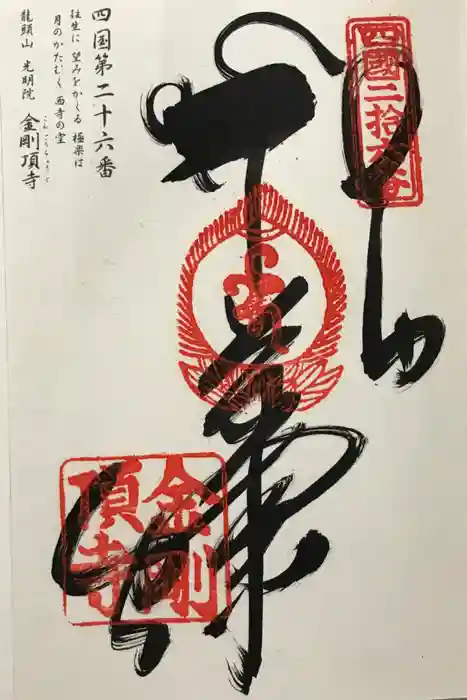 四国第二十六番
往生に 望みをかくる 極楽は
月のかたむく 西寺の空
龍頭山 光明院 金剛頂寺
こんごうちょうじ
四國二拾六番
金剛
頂寺